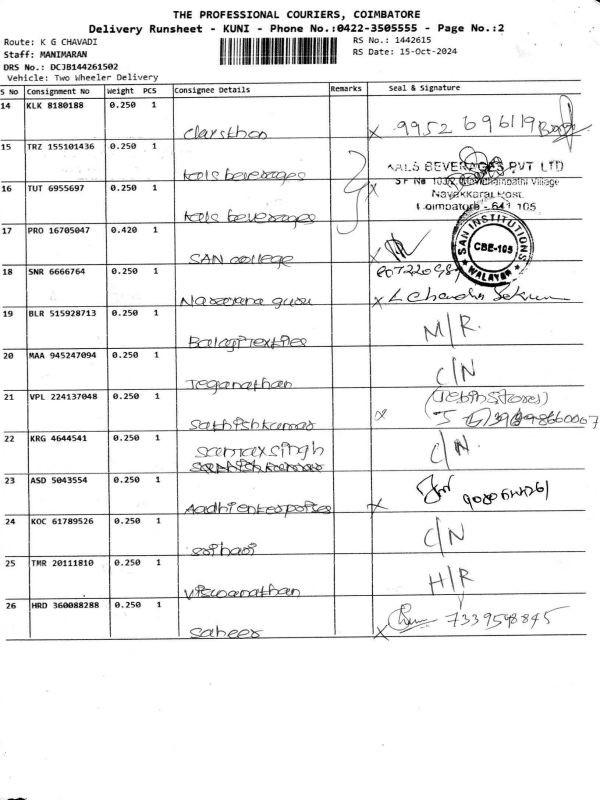 THE PROFESSIONAL COURIERS, COIMBATORE
Delivery Runsheet - KUNI - Phone No.:0422-3505555 - Page No.:2
Route: K G CHAVADI
RS No.: 1442615
Staff: MANIMARAN
RS Date: 15-Oct-2024
DRS No.: DCJB144261502
Vehicle: Two Wheeler Delivery
S No Consignment No Weight PCS Consignee Details Remarks Seal & Signature
14 KLK 8180188 0.250 1
Claysthon
x 9952 696119
15 TRZ 155101436 0.250 1
kals beverages
KALS BEVERAGES PVT LTD
16 TUT 6955697 0.250 1
Village
Nayakkarai Post.
Coimbatore - 641 105
kals beverages
17 PRO 16705047 0.420 1
SAN INSTITUTIONS
CBE-105
WALAYAR
SAN college
18 SNR 6666764 0.250 1
Narayana guru
x L Chandra Sekran
19 BLR 515928713 0.250 1
Balagi textiles
M/R.
20 MAA 945247094 0.250 1
Jeganathan
C/N
21 VPL 224137048 0.250 1
(Jebin Stores)
Sathishkumar
x
22 KRG 4644541 0.250 1
Samaxsingh
C/N.
23 ASD 5043554 0.250 1
Aadhi enterprises
x
24 KOC 61789526 0.250 1
Srihari
C/N
25 TMR 20111810 0.250 1
Viswanathan
H/R
26 HRD 360088288 0.250 1
Saheer
x 7339548845